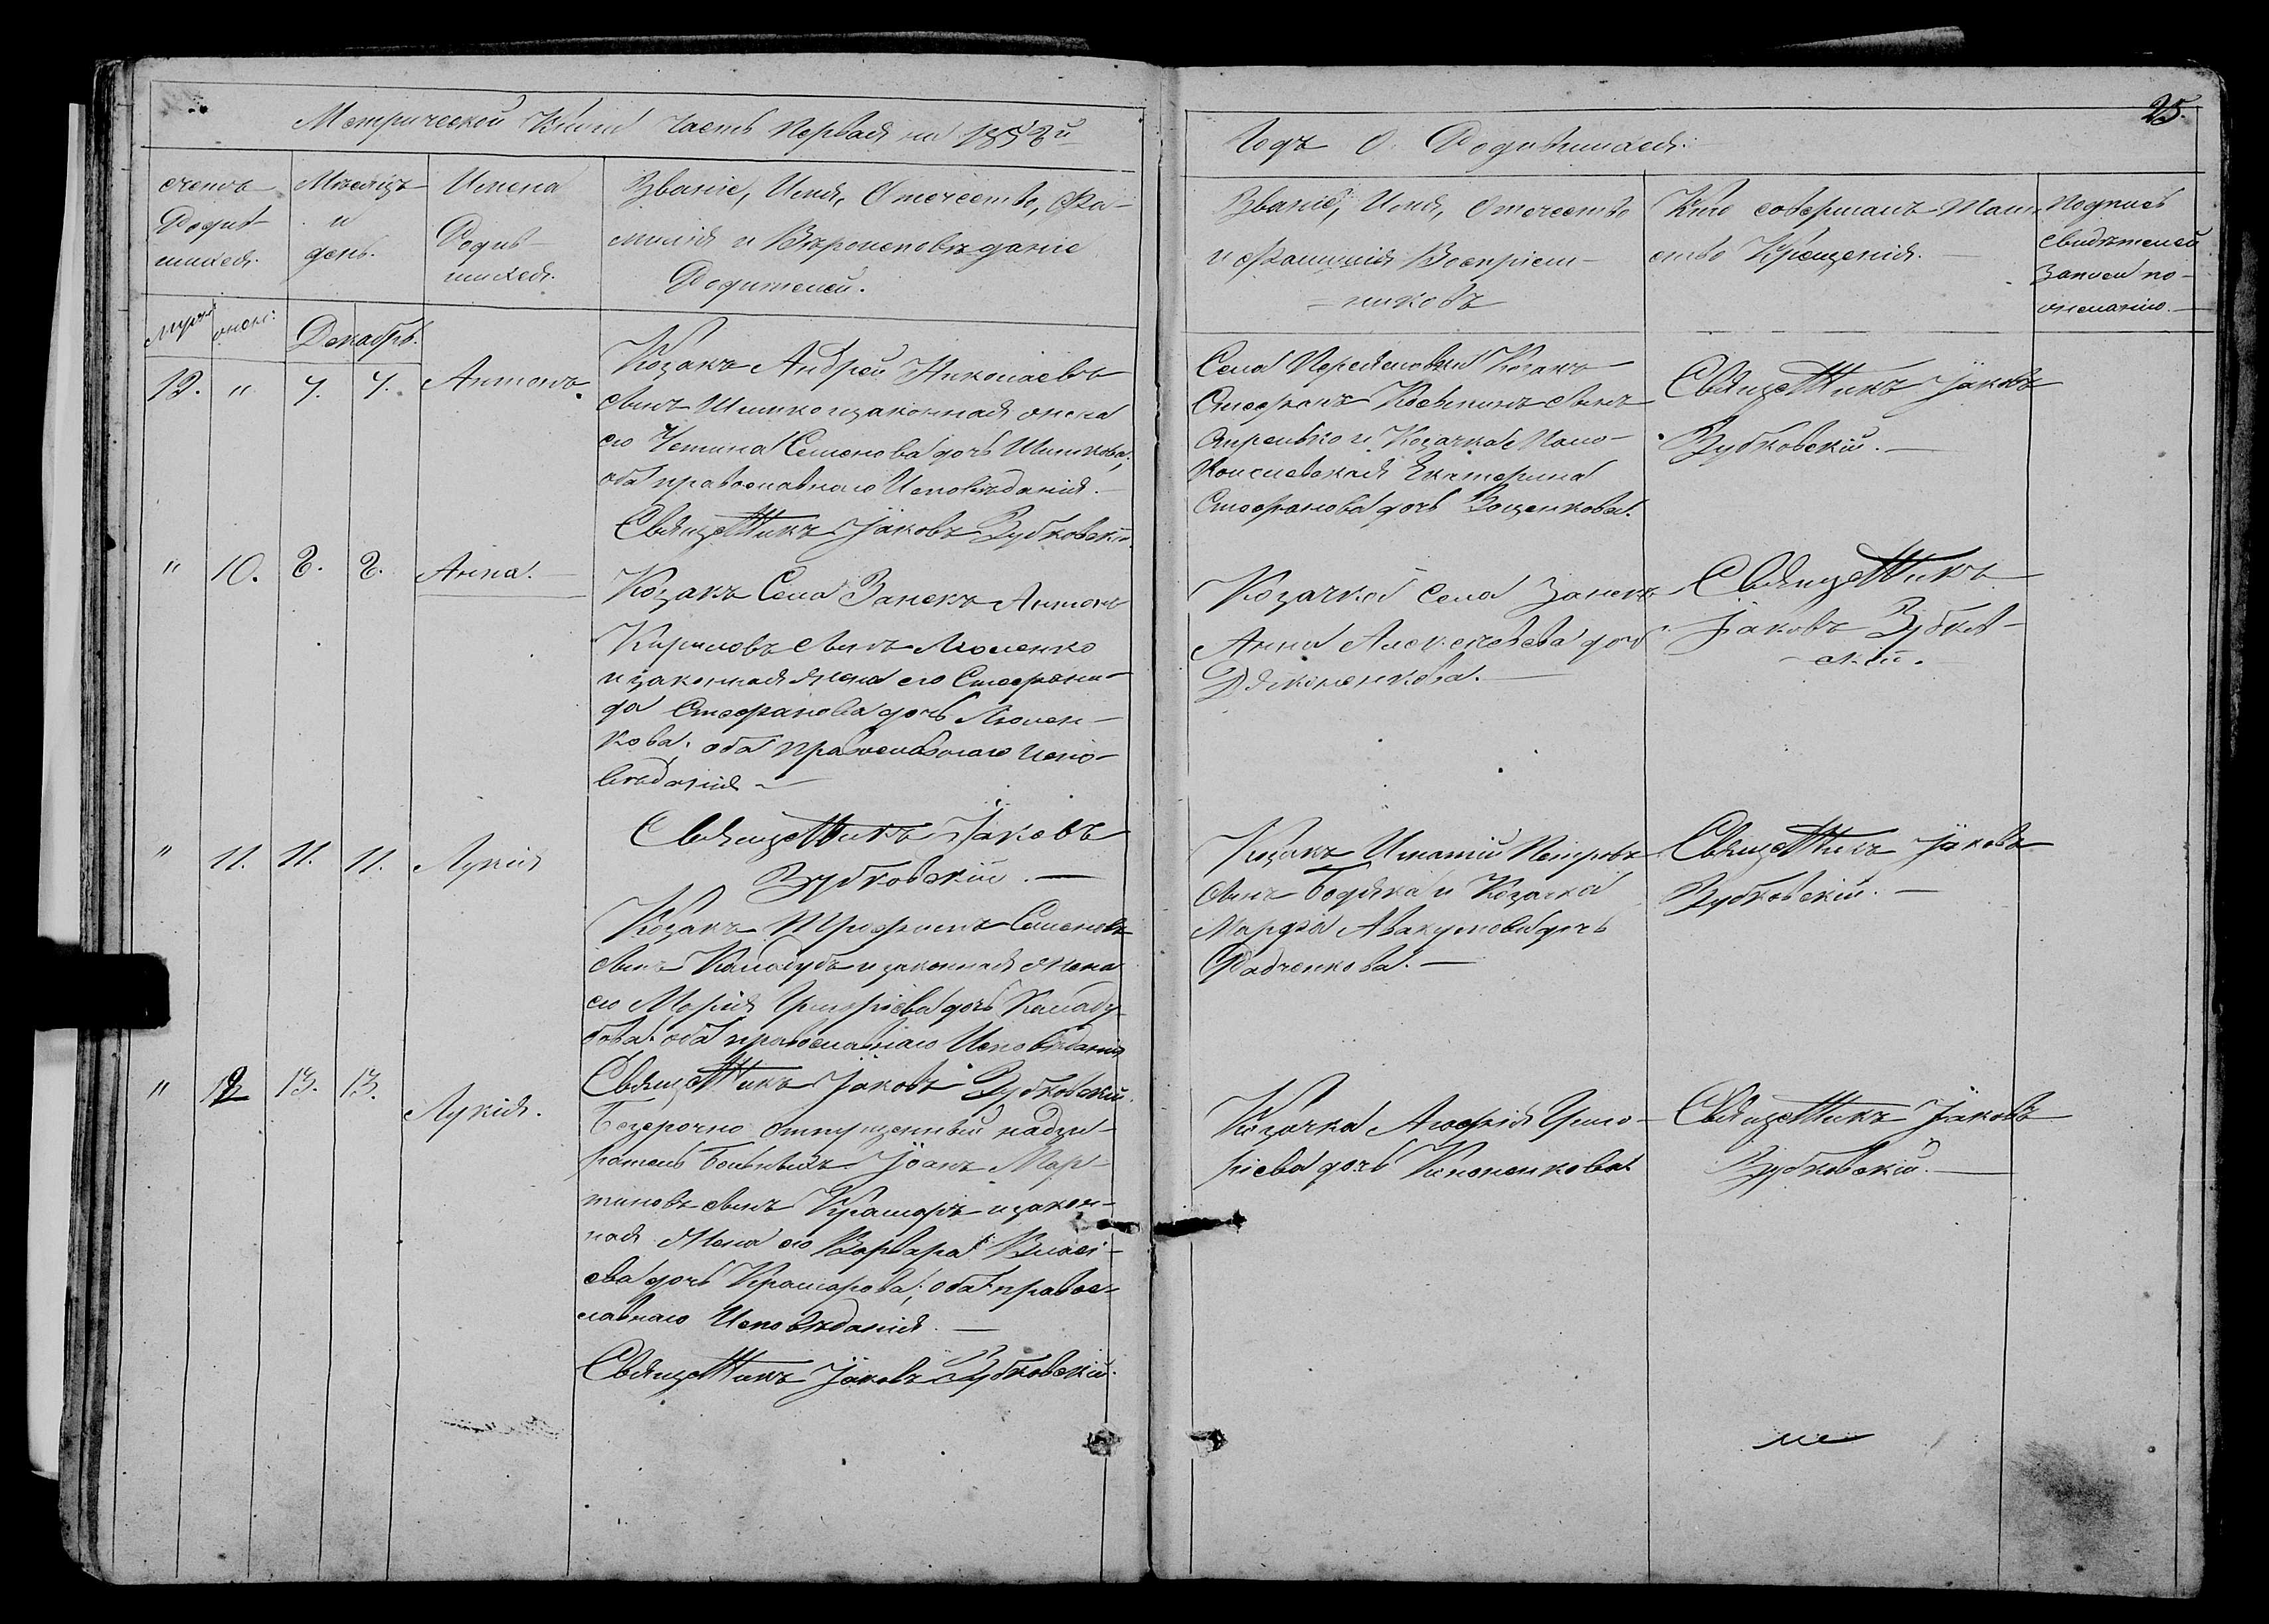 Метрической Книги Часть Первая на 1858й
Годъ О Родившихся.
25.
счетъ
Родив-
шихся.
Мѣсяцъ
и
день.
Имена
Родив-
шихся.
Званіе, Имя, Отечество, Фа-
милія и Вѣроисповѣданіе
Родителей.
Званіе, Имя, Отечество
и Фамилія Воспріем-
никовъ
Кто совершалъ Таин-
ство Крещенія.
Подпись
свидѣтелей
Записи по
желанію.
Декабрь.
12. " 7. 7. Антонъ.
Козакъ Андрей Николаевъ
сынъ Шишко и законная жена
его Устина Семенова дочь Шишкова,
оба православнаго Исповѣданія.
Священникъ Іаковъ Зубковскій.
Села Козакъ
Стефанъ сынъ
и Козачка
Екатерина
Стефанова дочь
Священникъ Іаковъ
Зубковскій.
" 10. 8. 8. Анна.
Козакъ Села Занекъ Антонъ
Кириловъ сынъ
и законная жена его Стефани-
да Стефанова дочь
кова. оба православнаго Испо-
вѣданія
Священникъ Іаковъ
Зубковскій.
Козачка села Занекъ
Анна Алексѣева дочь
Дяконенкова.
Священникъ
Іаковъ Зубков-
скій.
" 11. 11. 11. Лукія
Козакъ Трофимъ Семеновъ
сынъ Калабубъ и законная жена
его Марія Григоріева дочь Калабу-
бова. оба православнаго Исповѣданія
Священникъ Іаковъ Зубковскій.
Козакъ Игнатій Петровъ
сынъ Бодяка и Козачка
Марфа Авакумова дочь
Радченкова.
Священникъ Іаковъ
Зубковскій.
" 12 13. 13. Лукія.
Безсрочно отпущенный надзи-
ратель больныхъ Іоанъ Мар-
тиновъ сынъ Крамаръ и закон-
ная жена его Варвара Власі-
ева дочь Крамарова; оба право-
славнаго Исповѣданія.
Священникъ Іаковъ Зубковскій.
Козачка Агафія Григо-
ріева дочь Кононенкова
Священникъ Іаковъ
Зубковскій.